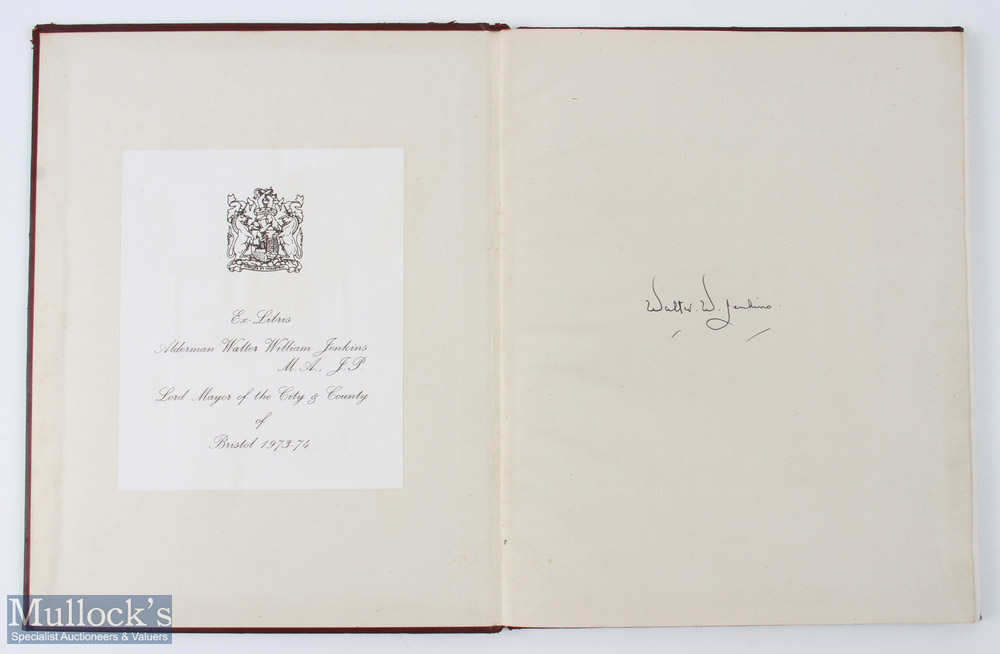 Ex-Libris
Alderman Walter William Jenkins
M.A., J.P.
Lord Mayor of the City & County
of
Bristol 1973-74
Walter. W. Jenkins.
Mullock's
Specialist Auctioneers & Valuers